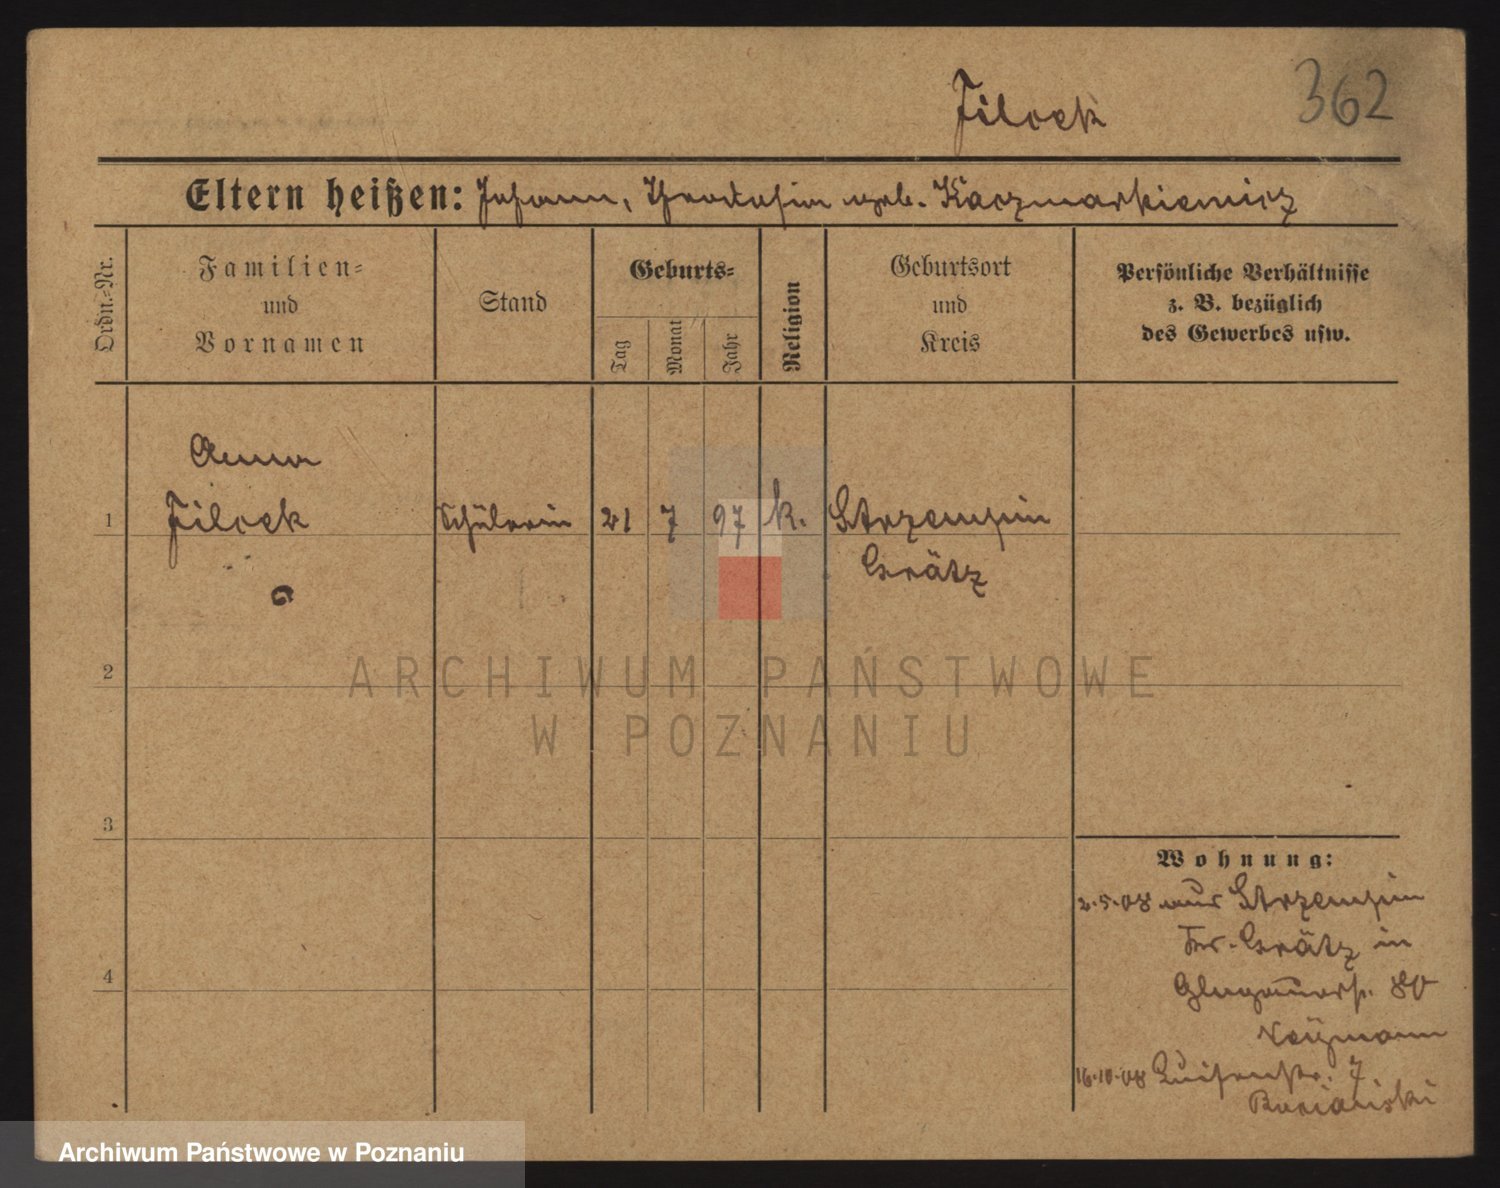 Filock
362
Eltern heißen: Johann, Theodosia geb. Kaczmarkiewicz
Ordn.-Nr.
Familien-
und
Vornamen
Stand
Geburts-
Tag
Monat
Jahr
Religion
Geburtsort
und
Kreis
Persönliche Verhältnisse
z. B. bezüglich
des Gewerbes usw.
Anna
1 Filock Schülerin 21 7 97 k. Strzempin
Grätz
2
3
4
Wohnung:
2.5.08 aus Strzempin
Grätz in
Glogauerstr. 80
16.10.08 Luisenstr. 7
ARCHIWUM PAŃSTWOWE
W POZNANIU
Archiwum Państwowe w Poznaniu